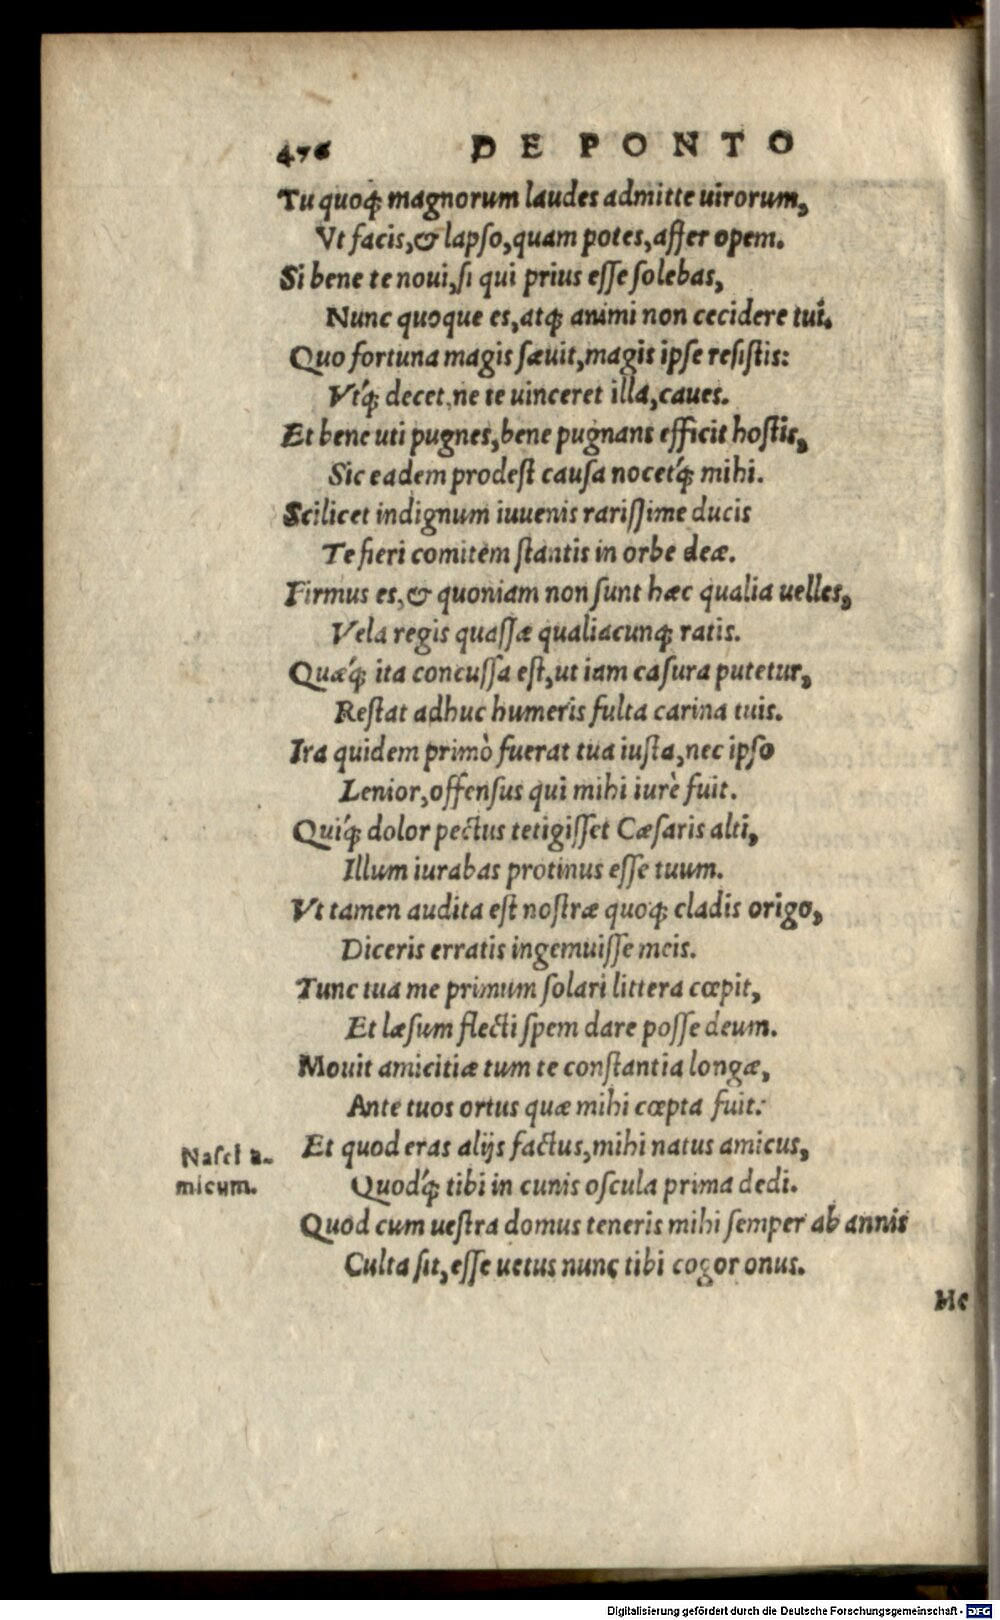 476 DE PONTO
Tu quoq; magnorum laudes admitte uirorum,
Vt facis, & lapso, quam potes, affer opem.
Si bene te noui, si qui prius esse solebas,
Nunc quoque es, atq; animi non cecidere tui.
Quo fortuna magis sæuit, magis ipse resistis:
Vtq́; decet, ne te uinceret illa, caues.
Et bene uti pugnes, bene pugnans efficit hostis,
Sic eadem prodest causa nocetq́; mihi.
Scilicet indignum iuuenis rarissime ducis
Te fieri comitem stantis in orbe deæ.
Firmus es, & quoniam non sunt hæc qualia uelles,
Vela regis quassæ qualiacunq; ratis.
Quæq́; ita concussa est, ut iam casura putetur,
Restat adhuc humeris fulta carina tuis.
Ira quidem primò fuerat tua iusta, nec ipso
Lenior, offensus qui mihi iurè fuit.
Quiq́; dolor pectus tetigisset Cæsaris alti,
Illum iurabas protinus esse tuum.
Vt tamen audita est nostræ quoq; cladis origo,
Diceris erratis ingemuisse meis.
Tunc tua me primum solari littera cœpit,
Et læsum flecti spem dare posse deum.
Mouit amicitiæ tum te constantia longæ,
Ante tuos ortus quæ mihi cœpta fuit:
Et quod eras alijs factus, mihi natus amicus,
Quodq́; tibi in cunis oscula prima dedi.
Quod cum uestra domus teneris mihi semper ab annis
Culta sit, esse uetus nunc tibi cogor onus.
Me
Nasci a-
micum.
Digitalisierung gefördert durch die Deutsche Forschungsgemeinschaft - DFG